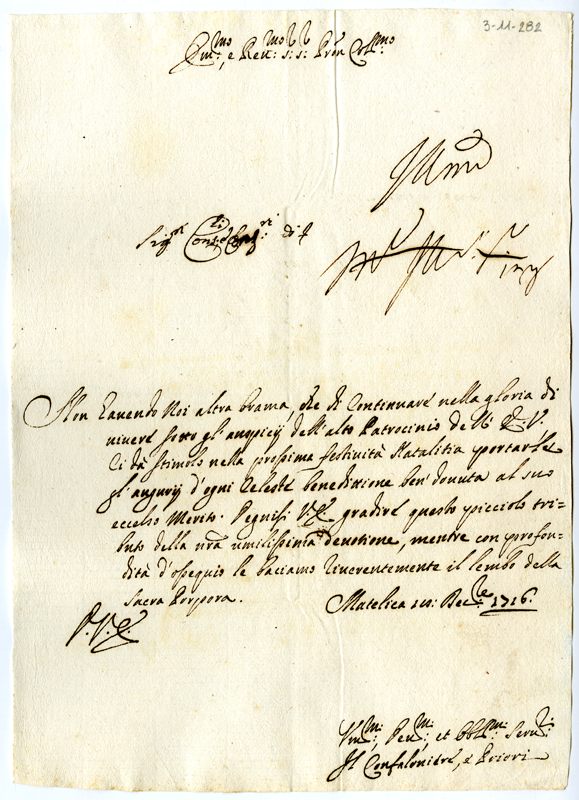 3-11-282
Em.mo, e Rev.mo S: S: Pron Coll.mo
Sig.r
di
Non havendo Noi altra brama, che di Continuare nella gloria di
vivere sotto gl'auspicij dell'alto Patrocinio dell' E. V.
Ci dà stimolo nella prossima festività Natalitia portarle
gl'augurij d'ogni Celeste benedizzione ben dovuta al suo
eccelso Merito. Degnisi V.E. gradire questo picciolo tri=
buto della nra umilissima devotione, mentre con profon=
dità d'ossequio le baciamo riverentemente il lembo della
Sacra Porpora. Matelica Xbre 1716.
V. E.
Um.mi: Dev.mi: et Obl.mi Serv.ri
Il Confaloniere, e Priori